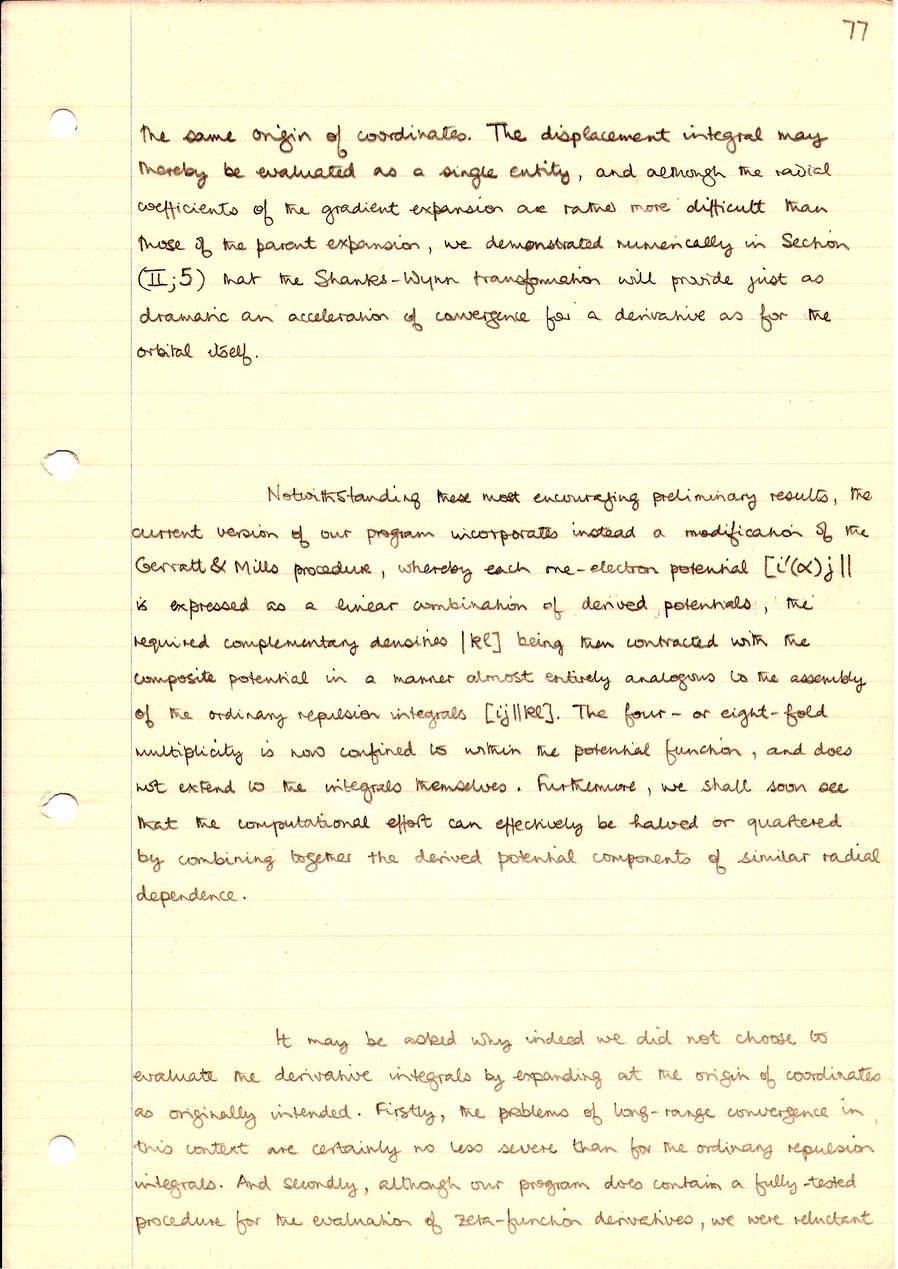 77
the same origin of coordinates. The displacement integral may
thereby be evaluated as a single entity, and although the radial
coefficients of the gradient expansion are rather more difficult than
those of the parent expansion, we demonstrated numerically in Section
(II;5) that the Shanks-Wynn transformation will provide just as
dramatic an acceleration of convergence for a derivative as for the
orbital itself.
Notwithstanding these most encouraging preliminary results, the
current version of our program incorporates instead a modification of the
Gerratt & Mills procedure, whereby each one-electron potential [i'(α)j||
is expressed as a linear combination of derived potentials, the
required complementary densities |kl] being then contracted with the
composite potential in a manner almost entirely analogous to the assembly
of the ordinary repulsion integrals [ij||kl]. The four- or eight-fold
multiplicity is now confined to within the potential function, and does
not extend to the integrals themselves. Furthermore, we shall soon see
that the computational effort can effectively be halved or quartered
by combining together the derived potential components of similar radial
dependence.
It may be asked why indeed we did not choose to
evaluate the derivative integrals by expanding at the origin of coordinates
as originally intended. Firstly, the problems of long-range convergence in
this context are certainly no less severe than for the ordinary repulsion
integrals. And secondly, although our program does contain a fully-tested
procedure for the evaluation of zeta-function derivatives, we were reluctant